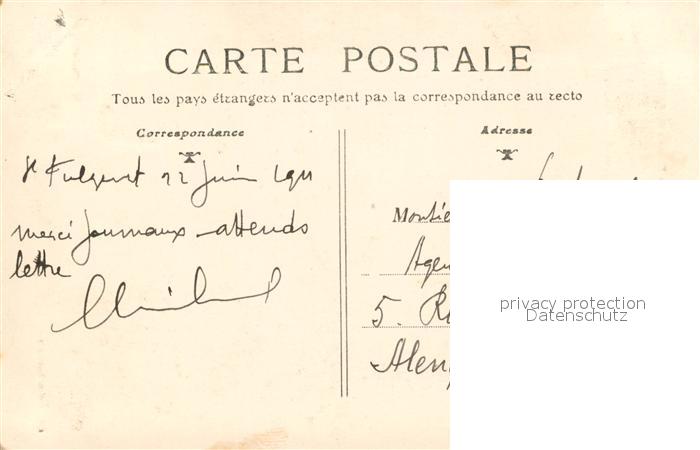 CARTE POSTALE
Tous les pays étrangers n'acceptent pas la correspondance au recto
Correspondance
Adresse
St Fulgent 22 Juin 1911
Monsie
merci journaux - attends
lettre
Agen
5. R
Alen
privacy protection
Datenschutz